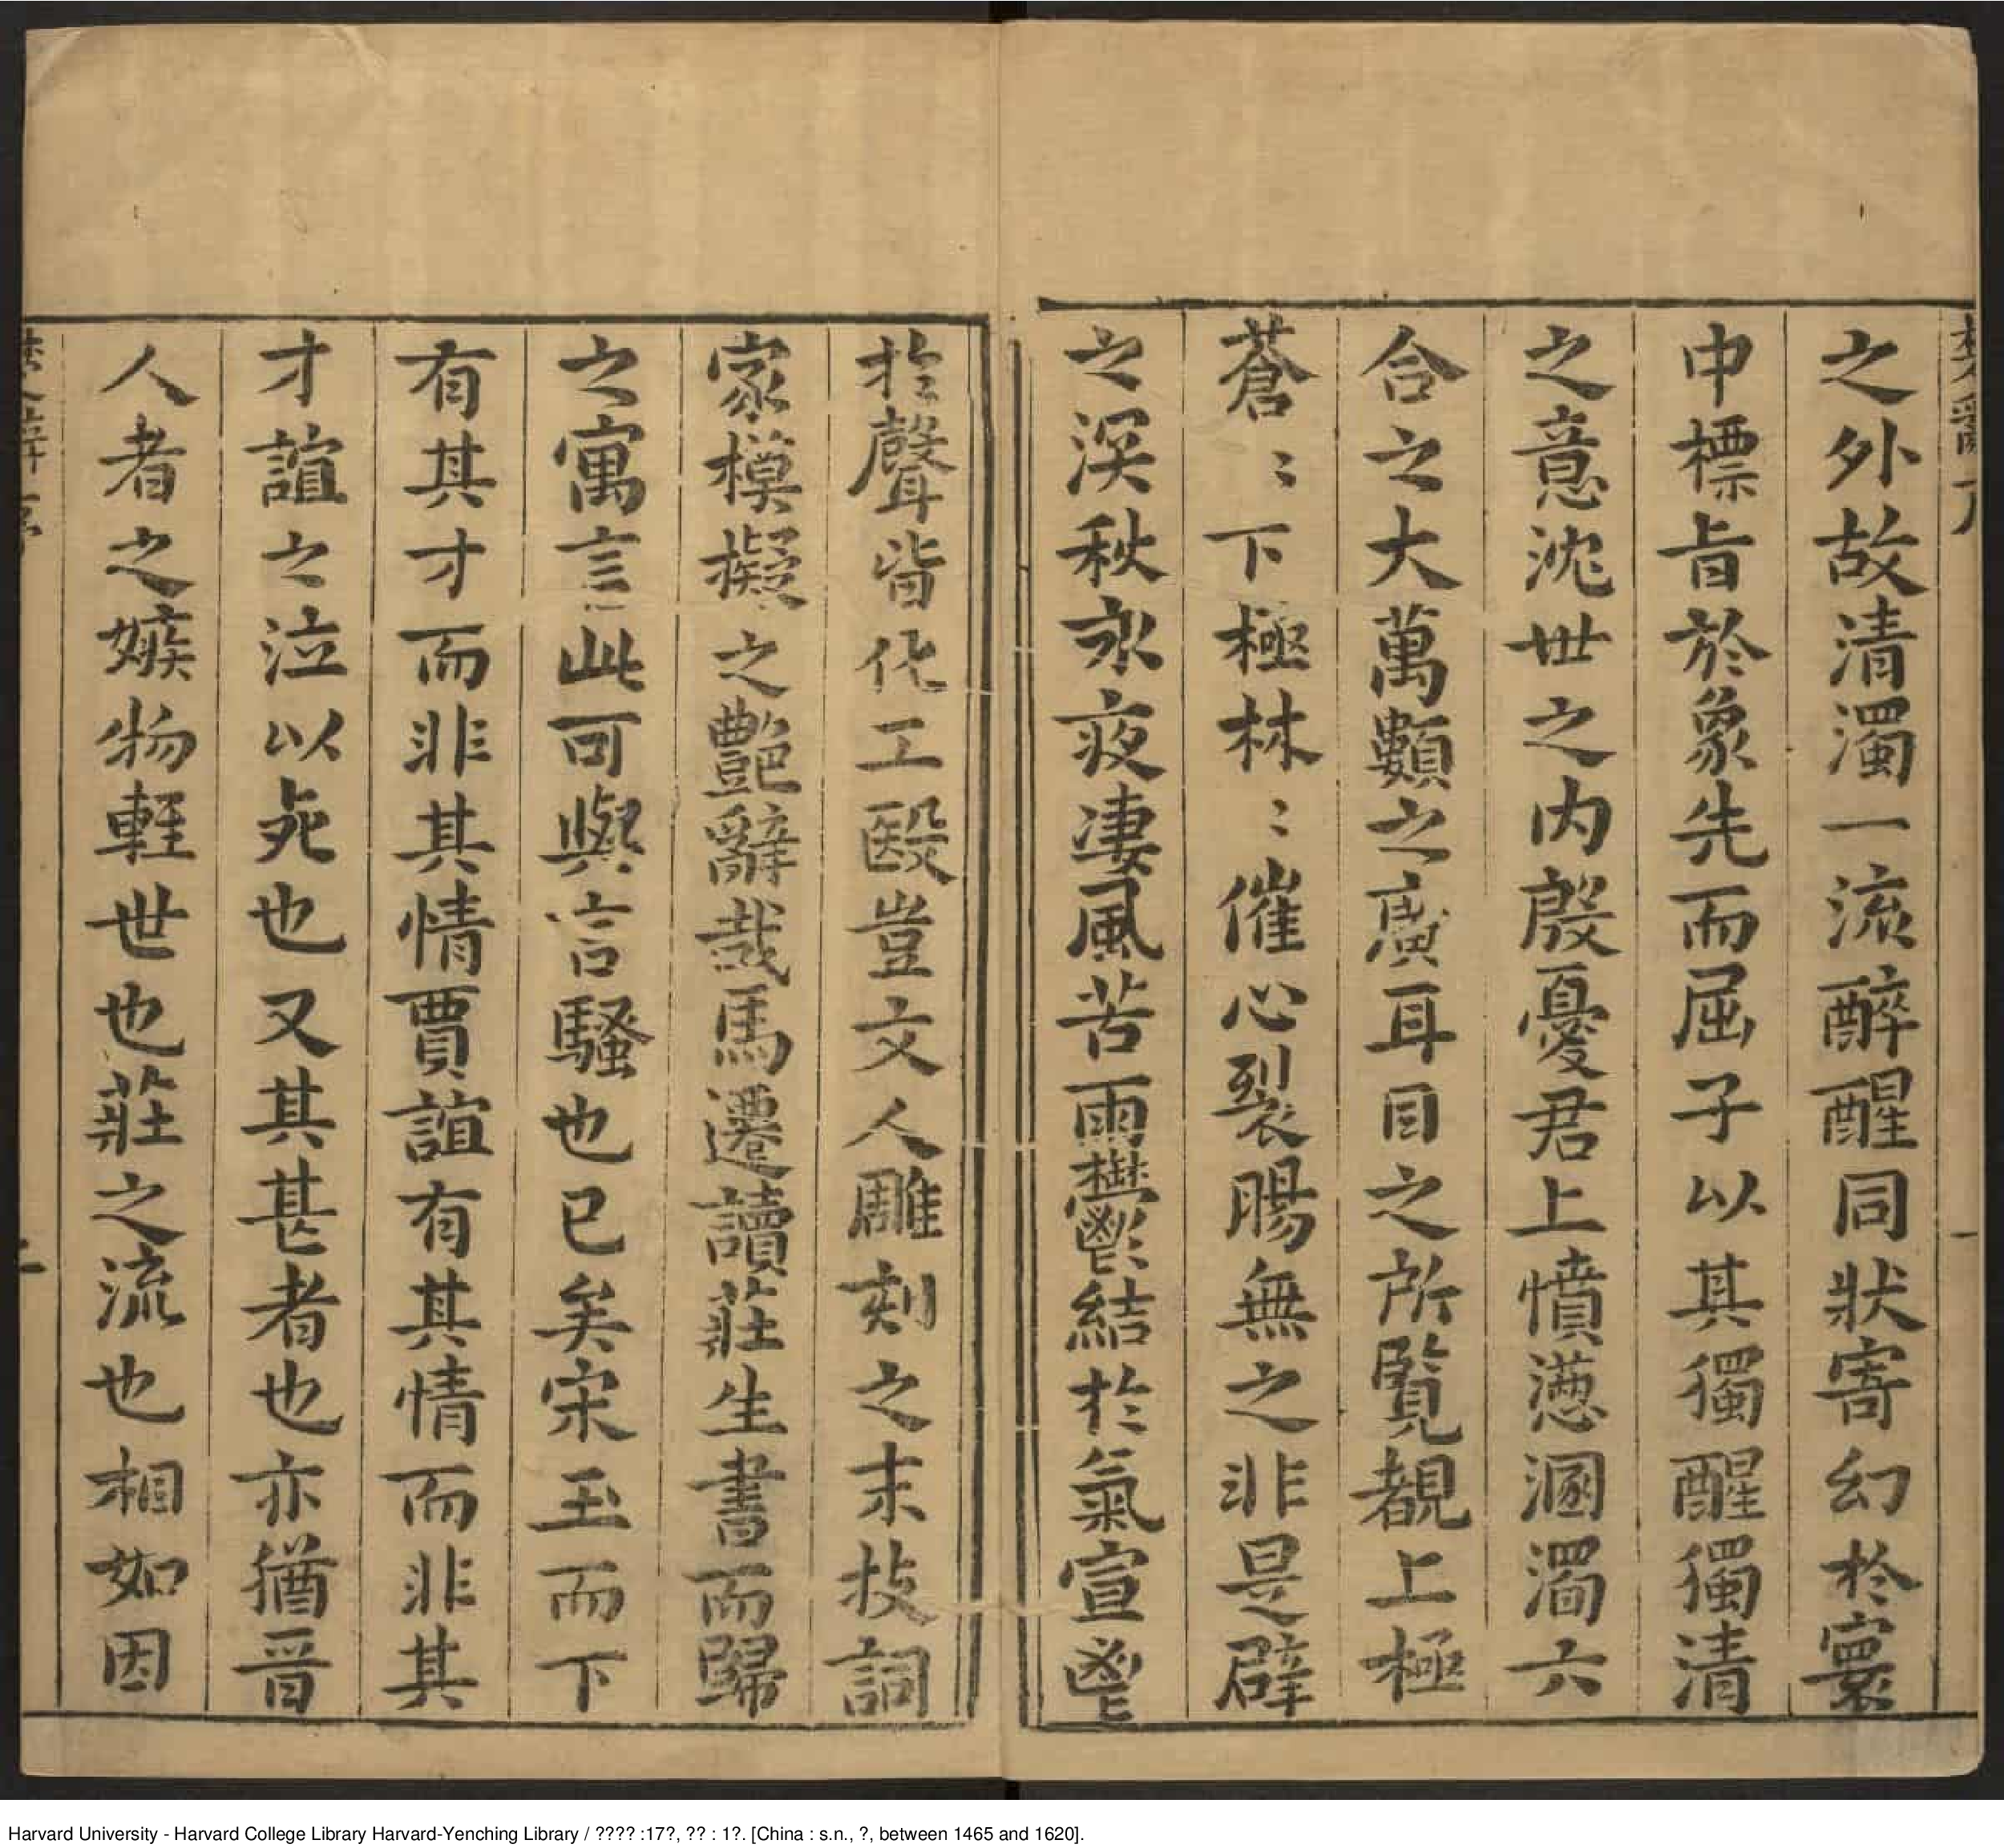 之外故清濁一流醉醒同狀寄幻於寰
中標旨於象先而屈子以其獨醒獨清
之意沈世之内殷憂君上憤懣溷濁六
合之大萬顆之廣耳目之所覽覩上極
蒼〻下極林〻催心裂腸無之非是辟
之深秋永夜淒風苦雨欝結於氣宣鬯
於聲皆化工殹豈文人雕刻之末技詞
家模擬之艷辭哉馬遷讀莊生書而歸
之寓言此可與言騷也已矣宋玉而下
有其才而非其情賈誼有其情而非其
才誼之泣以死也又其甚者也亦猶晋
人者之嫉物輕世也莊之流也相如因
楚辭序
二
Harvard University - Harvard College Library Harvard-Yenching Library / ???? :17?, ?? : 1?. [China : s.n., ?, between 1465 and 1620].